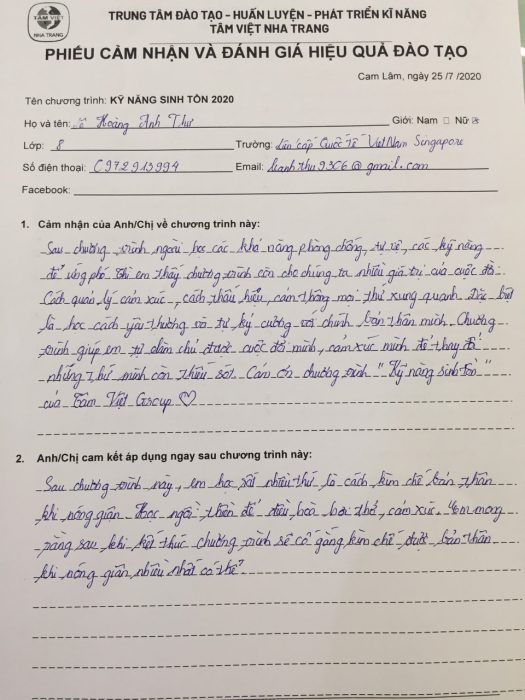 TÂM VIỆT
NHA TRANG
TRUNG TÂM ĐÀO TẠO - HUẤN LUYỆN - PHÁT TRIỂN KĨ NĂNG
TÂM VIỆT NHA TRANG
PHIẾU CẢM NHẬN VÀ ĐÁNH GIÁ HIỆU QUẢ ĐÀO TẠO
Cam Lâm, ngày 25 /7 /2020
Tên chương trình: KỸ NĂNG SINH TỒN 2020
Họ và tên: Hoàng Anh Thư Giới: Nam ☐ Nữ ☒
Lớp: 8 Trường: Liên cấp Quốc Tế Việt Nam Singapore
Số điện thoại: 0972913994 Email: @gmail.com
Facebook:
1. Cảm nhận của Anh/Chị về chương trình này:
Sau chương trình ngoài học các khả năng phòng chống, tự vệ, các kỹ năng
để ứng phó. Thì em thấy chương trình còn cho chúng ta nhiều giá trị của cuộc đời
Cách quản lý cảm xúc, cách thấu hiểu, cảm thông mọi thứ xung quanh. Đặc biệt
là học cách yêu thương và tự kỷ cương với chính bản thân mình. Chương
trình giúp em tự làm chủ được cuộc đời mình, cảm xúc mình để thay đổi
những thứ mình còn thiếu sót. Cám ơn chương trình "Kỹ năng sinh tồn"
của Tâm Việt Group ♡
2. Anh/Chị cam kết áp dụng ngay sau chương trình này:
Sau chương trình này, em học rất nhiều thứ là cách kìm chế bản thân
khi nóng giận. Học ngồi thiền để điều hoà hơi thở, cảm xúc. Em mong
rằng sau khi kết thúc chương trình sẽ cố gắng kìm chế được bản thân
khi nóng giận nhiều nhất có thể.